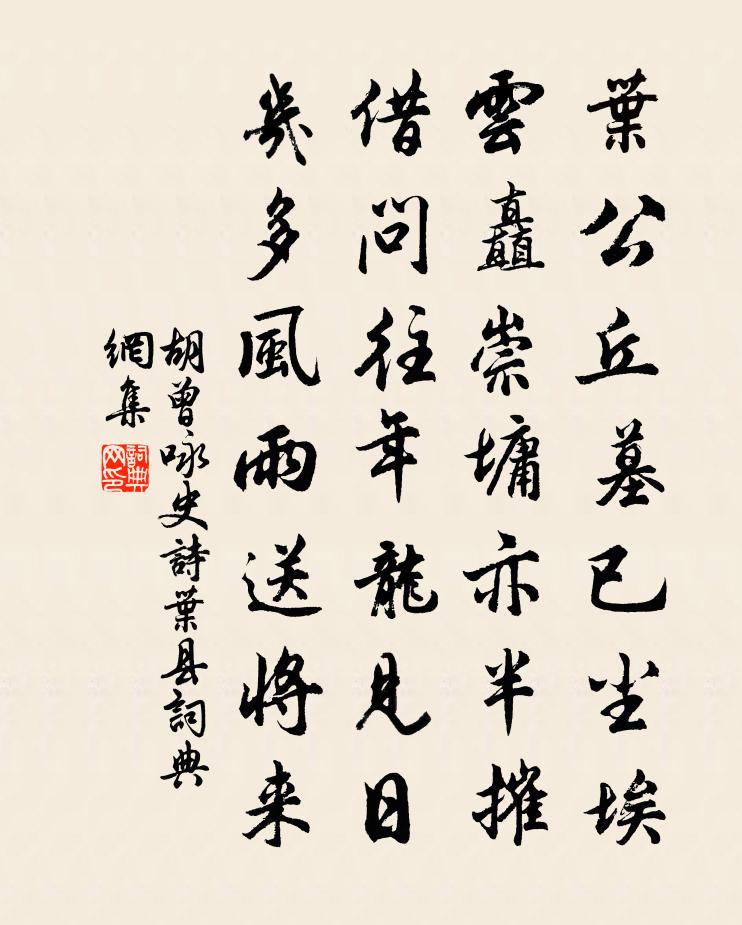 葉公丘墓已尘埃
雲矗崇墉亦半摧
借問往年龍見日
幾多風雨送將来
胡曾咏史詩葉县詞典
網集
詞典
网印